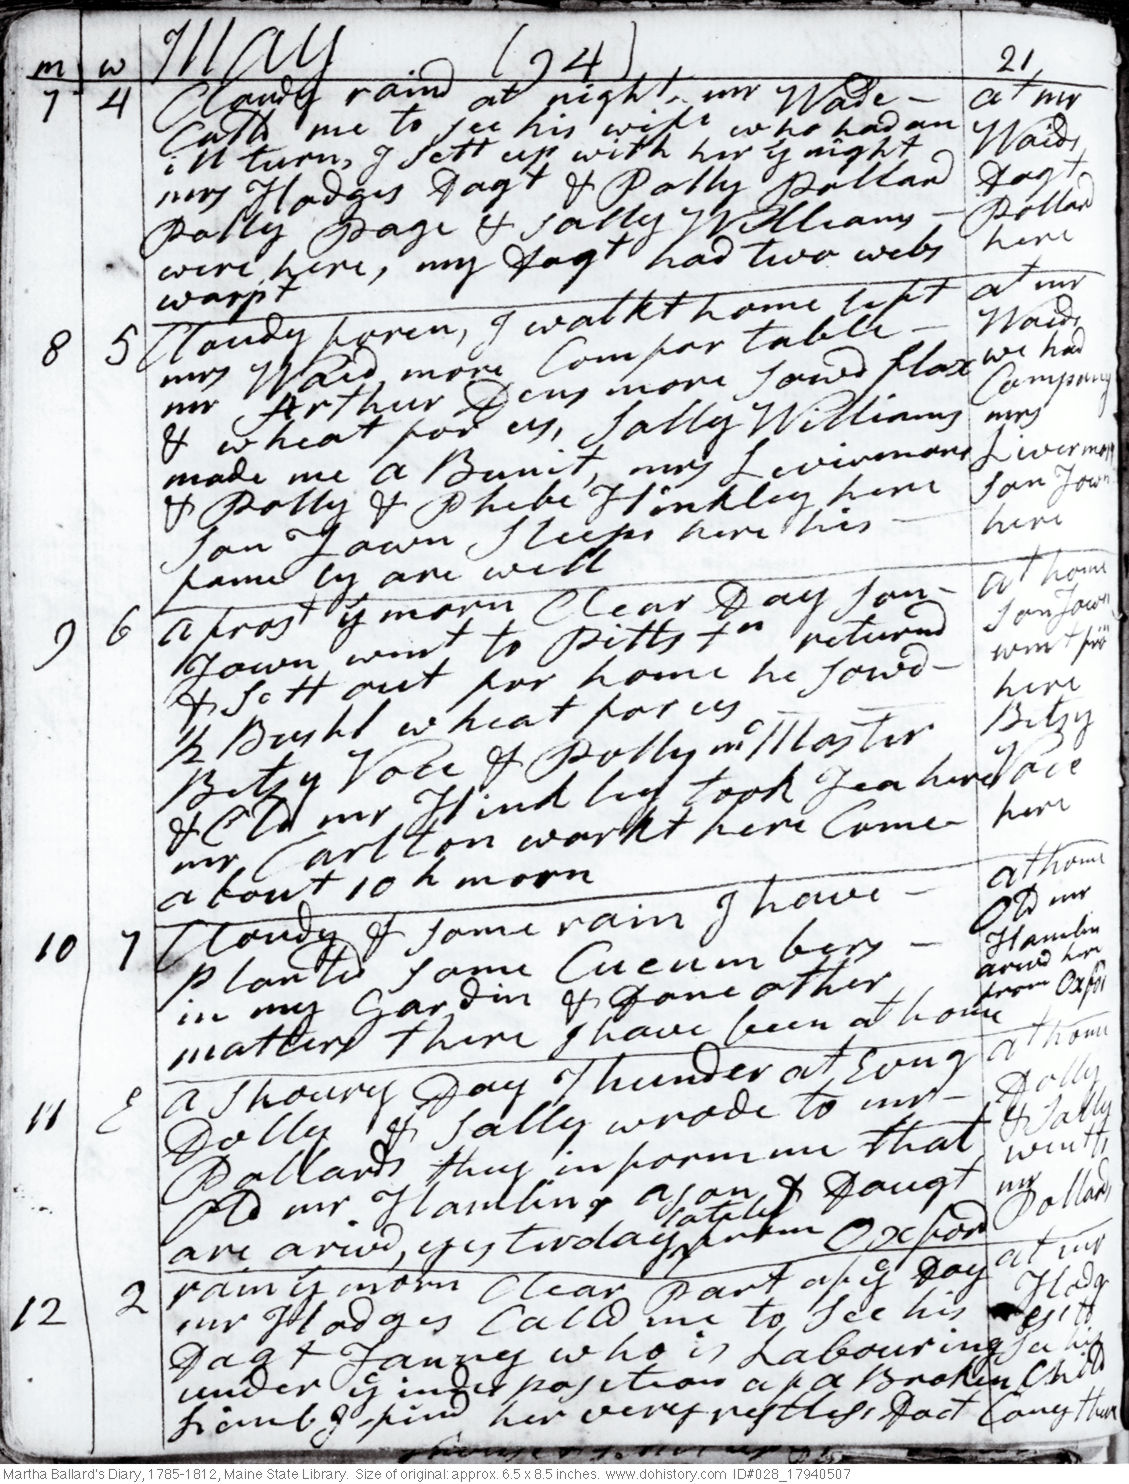 m w May (94) 21
7 4 Cloudy rain at night. mr Wade – at mr
Calld me to see his wife who had an Waids
ill turn, I sett up with her ÿ night Dagt
mrs Hodges Dagt & Polly Pollard Pollard
Polly Page & Sally Williams – here
were here, my Dagt had two webs
warpt
8 5 Cloudy foren, I walkt home left at mr
mrs Waid more Comfortable – Waids
mr Arthur Densmore sowd flax we had
& wheat for us, Sally Williams Company
made me a Bunit, mrs Livermore mrs
& Polly & Phebe Hinkley here Livermore
son Town Sleeps here his – son Town
famely are well here
9 6 a frost ÿ morn Clear Day son – at home
Town went to Pittstn returnd son Town
& Sett out for home he sowd – went from
½ Bushl wheat for us here
Betsy Voce & Polly mcMaster Betsy
& Old mr Hinkley took Tea here Voce
mr Carlton workt here Came – here
about 10 h morn
10 7 Cloudy & some rain I have – at home
plantd some Cucumbers – Old mr
in my Gardin & Done other Hamlin
matters there I have been at home arivd here
from Oxford
11 E a Shoury Day Thunder at Evng at home
Dolly & Sally wrode to mr – Dolly
Pollards they inform me that & Sally
Old mr Hamlin & a son & Daugt went to
are arivd, yesterday from Oxford mr
lately Pollards
12 2 rain ÿ morn Clear Part of ÿ Day at mr
mr Hodges Calld me to See his Hodg
Dagt Fanny who is Labouring es to
under ÿ inderposition of a Broken se his
Limb I find her very restless Doct Child
Coney there